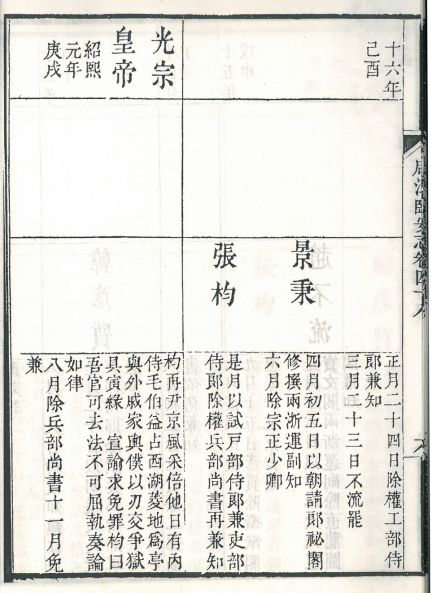 十六年
己酉
光宗
皇帝
紹熙
元年
庚戌
景秉
張杓
正月二十四日除權工部侍
郎兼知
三月二十三日不流罷
四月初五日以朝請郎祕閣
修撰兩浙運副知
六月除宗正少卿
是月以試戶部侍郎兼吏部
侍郎除權兵部尚書再兼知
杓再尹京風采倍他日有內
侍毛伯益占西湖菱地爲亭
與外戚家輿僕以刃交爭獄
具寅緣 宣諭求免罪杓曰
吾官可去法不可屈執奏論
如律
八月除兵部尚書十一月免
兼